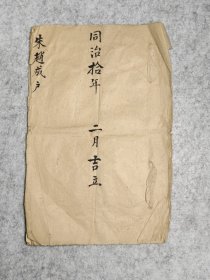 同治拾年 二月吉立
朱趙成户